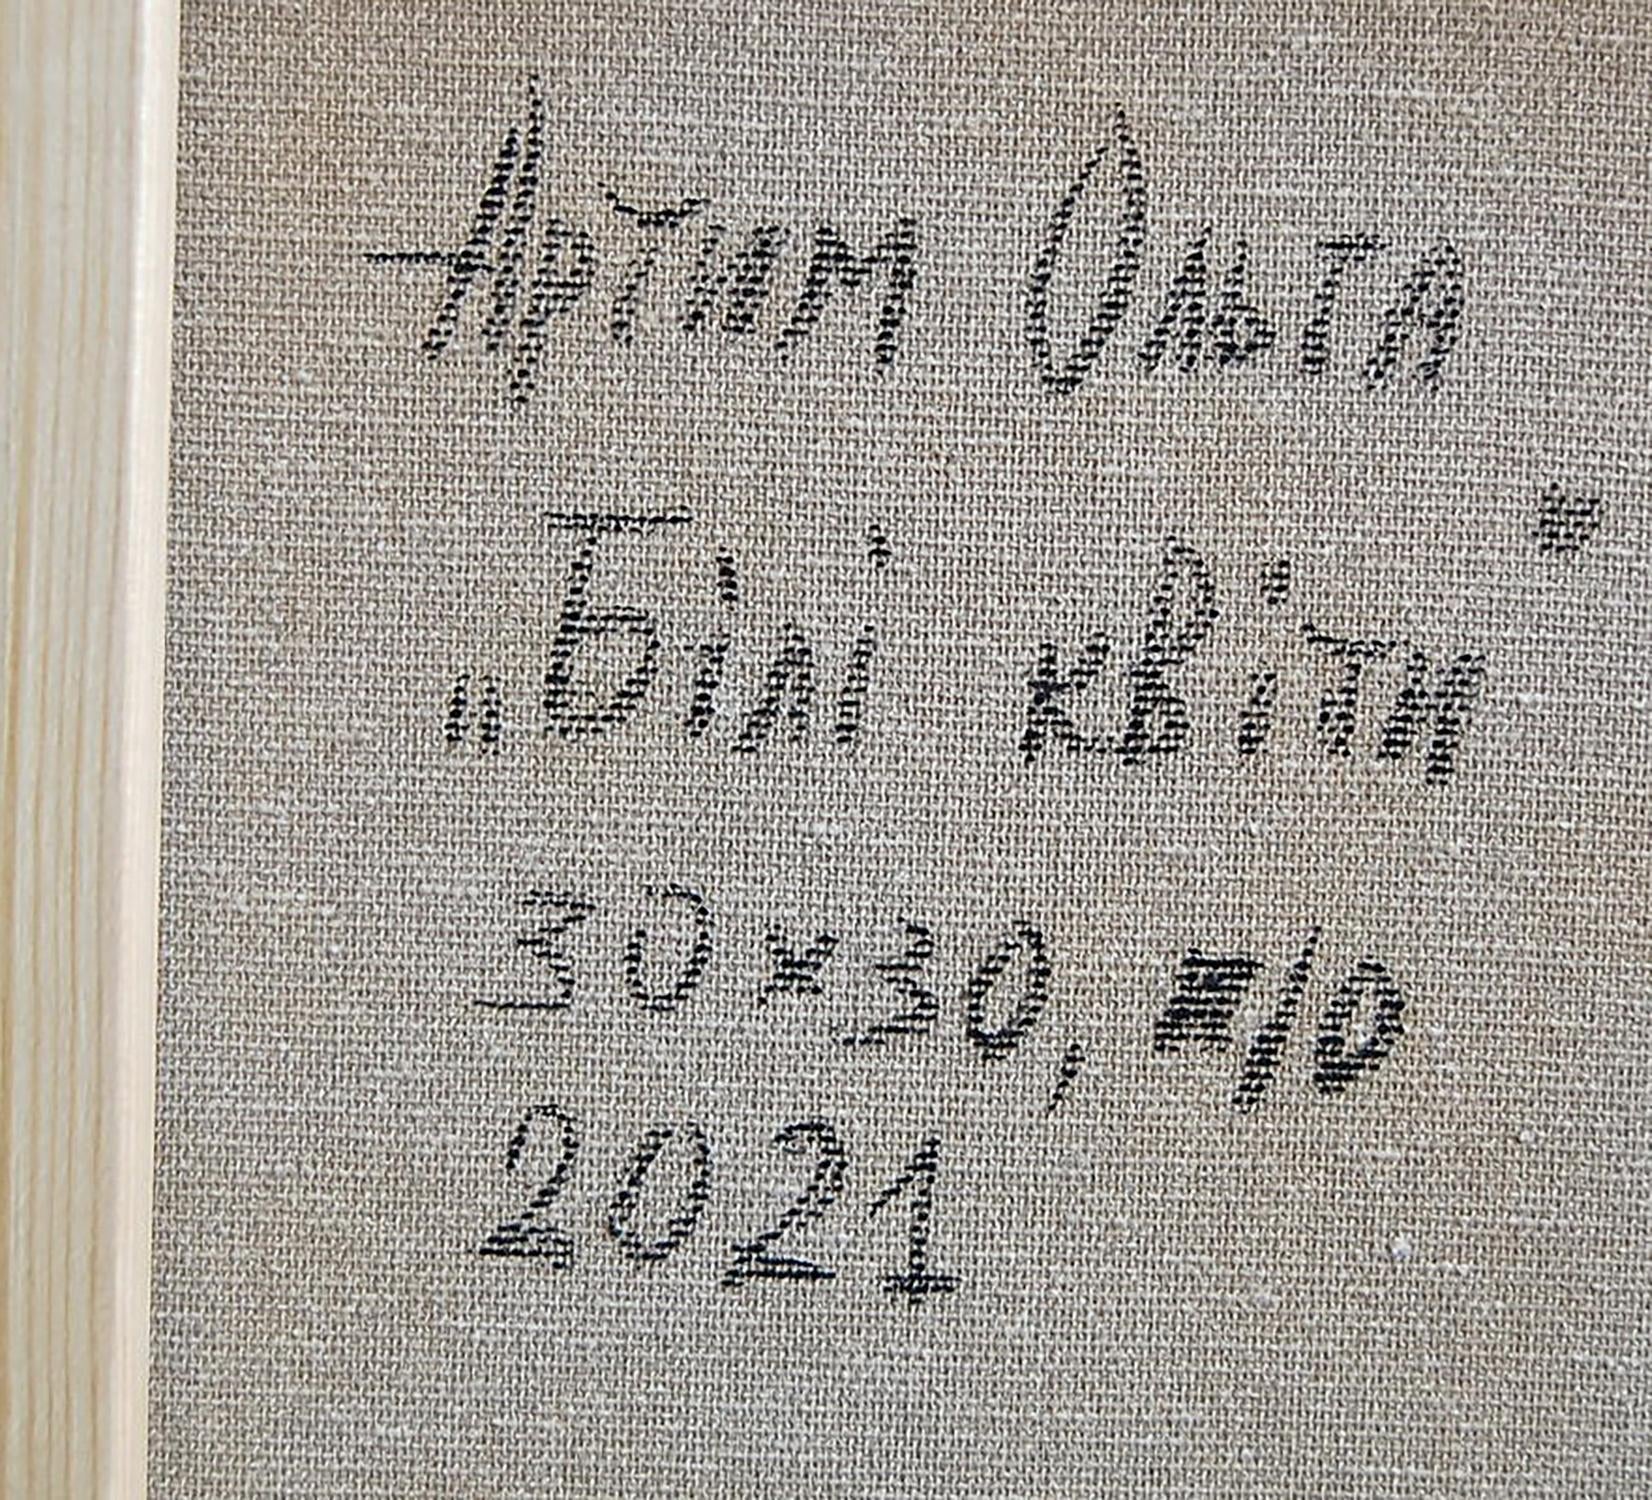 Артим Ольга
„Білі квіти"
30х30, п/о
2021